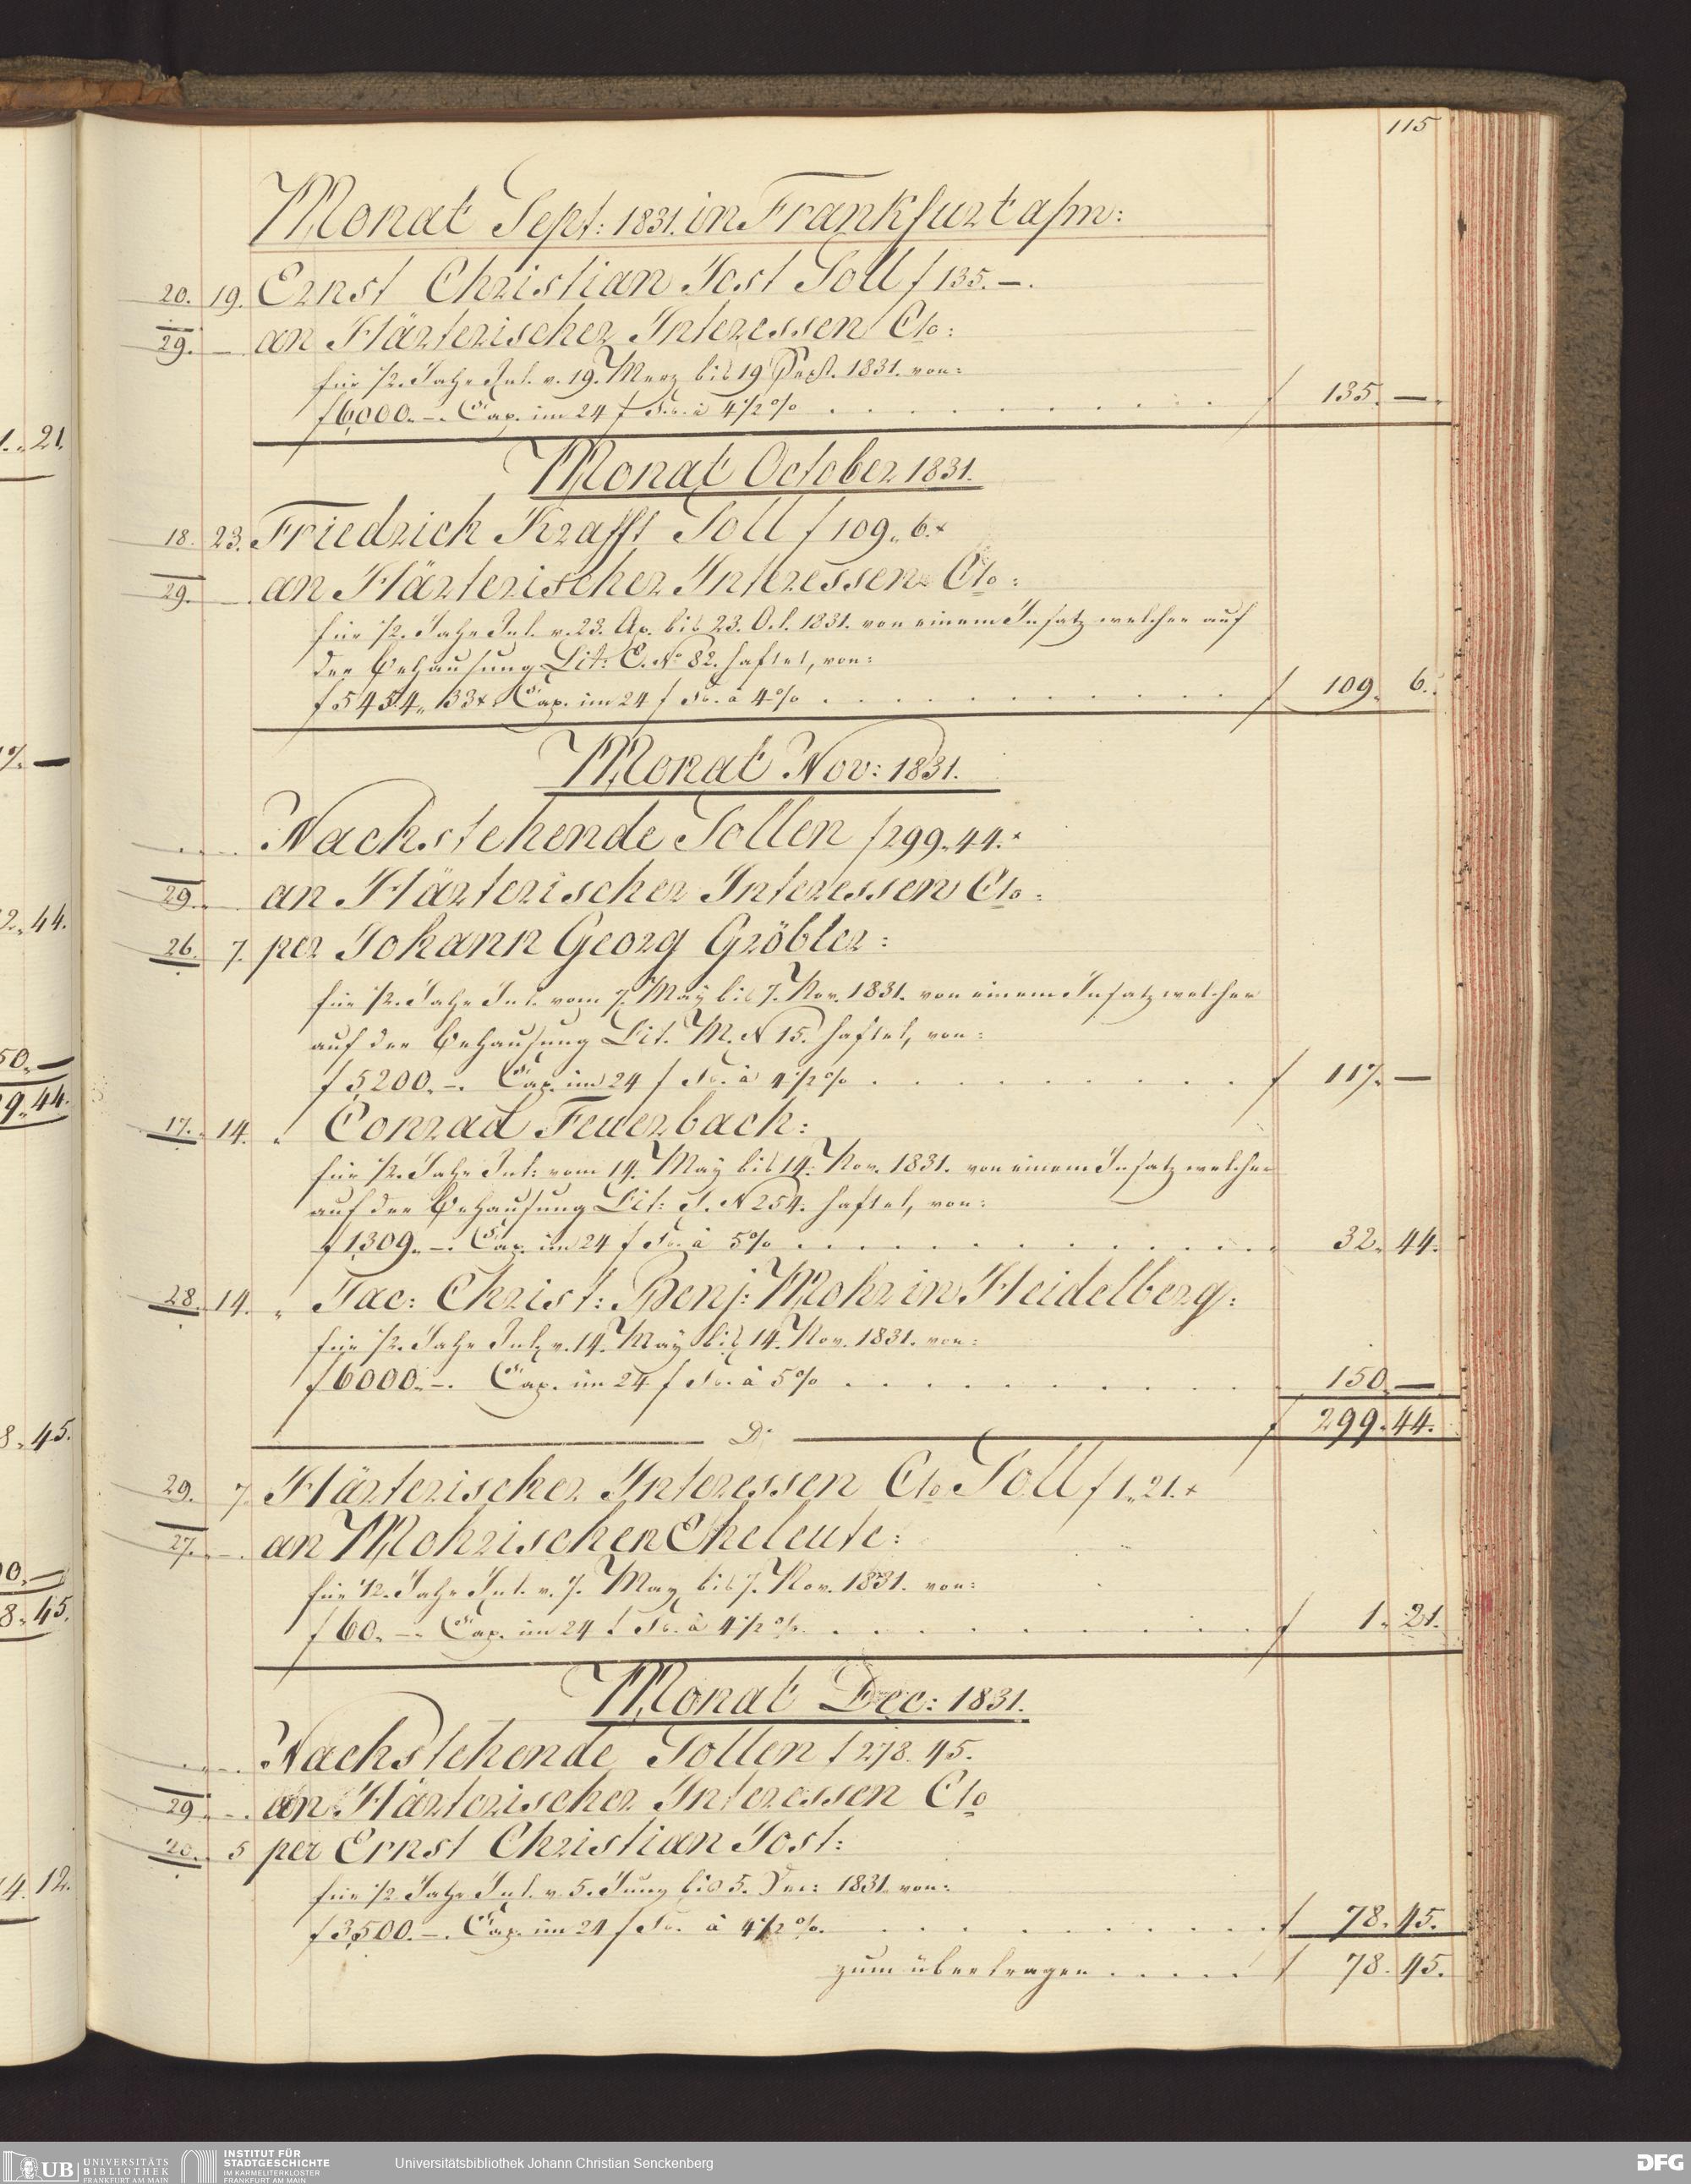 115
Monat Sept: 1831. in Frankfurt a/m:
20. 19. Ernst Christian Jost Soll f 135. —.
29. — an Härterischer Interessen Cto:
für 1/2. Jahr Int. v. 19. Merz bis 19 Sept. 1831. von:
f 6000. —. Cap. im 24 f Fs. à 4 1/2 % . . . . . . . . . . f 135. —.
Monat October 1831.
18. 23. Friedrich Krafft Soll f 109. 6. x
29. — an Härterischer Interessen Cto:
für 1/2. Jahr Int. v. 23. Ap. bis 23. Oct. 1831. von einem Insatz welcher auf
der Behausung Lit: C. No 82. haftet, von:
f 5454. 33 x Cap. im 24 f Fs. à 4 % . . . . . . . . . . f 109. 6.
Monat Nov: 1831.
Nachstehende Sollen f 299. 44. x
29. — an Härterischer Interessen Cto:
26. 7. per Johann Georg Gröbler:
für 1/2. Jahr Int. vom 7. May bis 7. Nov. 1831. von einem Insatz welcher
auf der Behausung Lit. M. N 15. haftet, von:
f 5200. —. Cap. im 24 f Fs. à 4 1/2 % . . . . . . . . . f 117. —
17. 14. " Conrad Feuerbach:
für 1/2. Jahr Int: vom 14. May bis 14. Nov. 1831. von einem Insatz welcher
auf der Behausung Lit: J. N 254. haftet, von:
f 1309. —. Cap. im 24 f Fs. à 5 % . . . . . . . . . . 32. 44.
28. 14. " Jac: Christ: Benj: Mohr in Heidelberg:
für 1/2. Jahr Int. v. 14. May bis 14. Nov. 1831. von:
f 6000. —. Cap. im 24 f Fs. à 5 % . . . . . . . . . . 150. —
f 299. 44.
Do
29. 7. Härterischer Interessen Cto Soll f 1. 21. x
27. — an Mohrischen Eheleute:
für 1/2. Jahr Int. v. 7. May bis 7. Nov. 1831. von:
f 60. —. Cap. im 24 f Fs. à 4 1/2 % . . . . . . . . . . f 1. 21.
Monat Dec: 1831.
Nachstehende Sollen f 278. 45.
29. — an Härterischer Interessen Cto
20. 5 per Ernst Christian Jost:
für 1/2 Jahr Int. v. 5. Juny bis 5. Dec: 1831. von:
f 3500. —. Cap. im 24 f Fs. à 4 1/2 %. . . . . . . . . . f 78. 45.
zum übertragen . . . . . f 78. 45.
21.
—
44.
50. —
9. 44.
8. 45.
8. 45.
4. 12.
UB UNIVERSITÄTS BIBLIOTHEK FRANKFURT AM MAIN
INSTITUT FÜR STADTGESCHICHTE IM KARMELITERKLOSTER FRANKFURT AM MAIN
Universitätsbibliothek Johann Christian Senckenberg
DFG